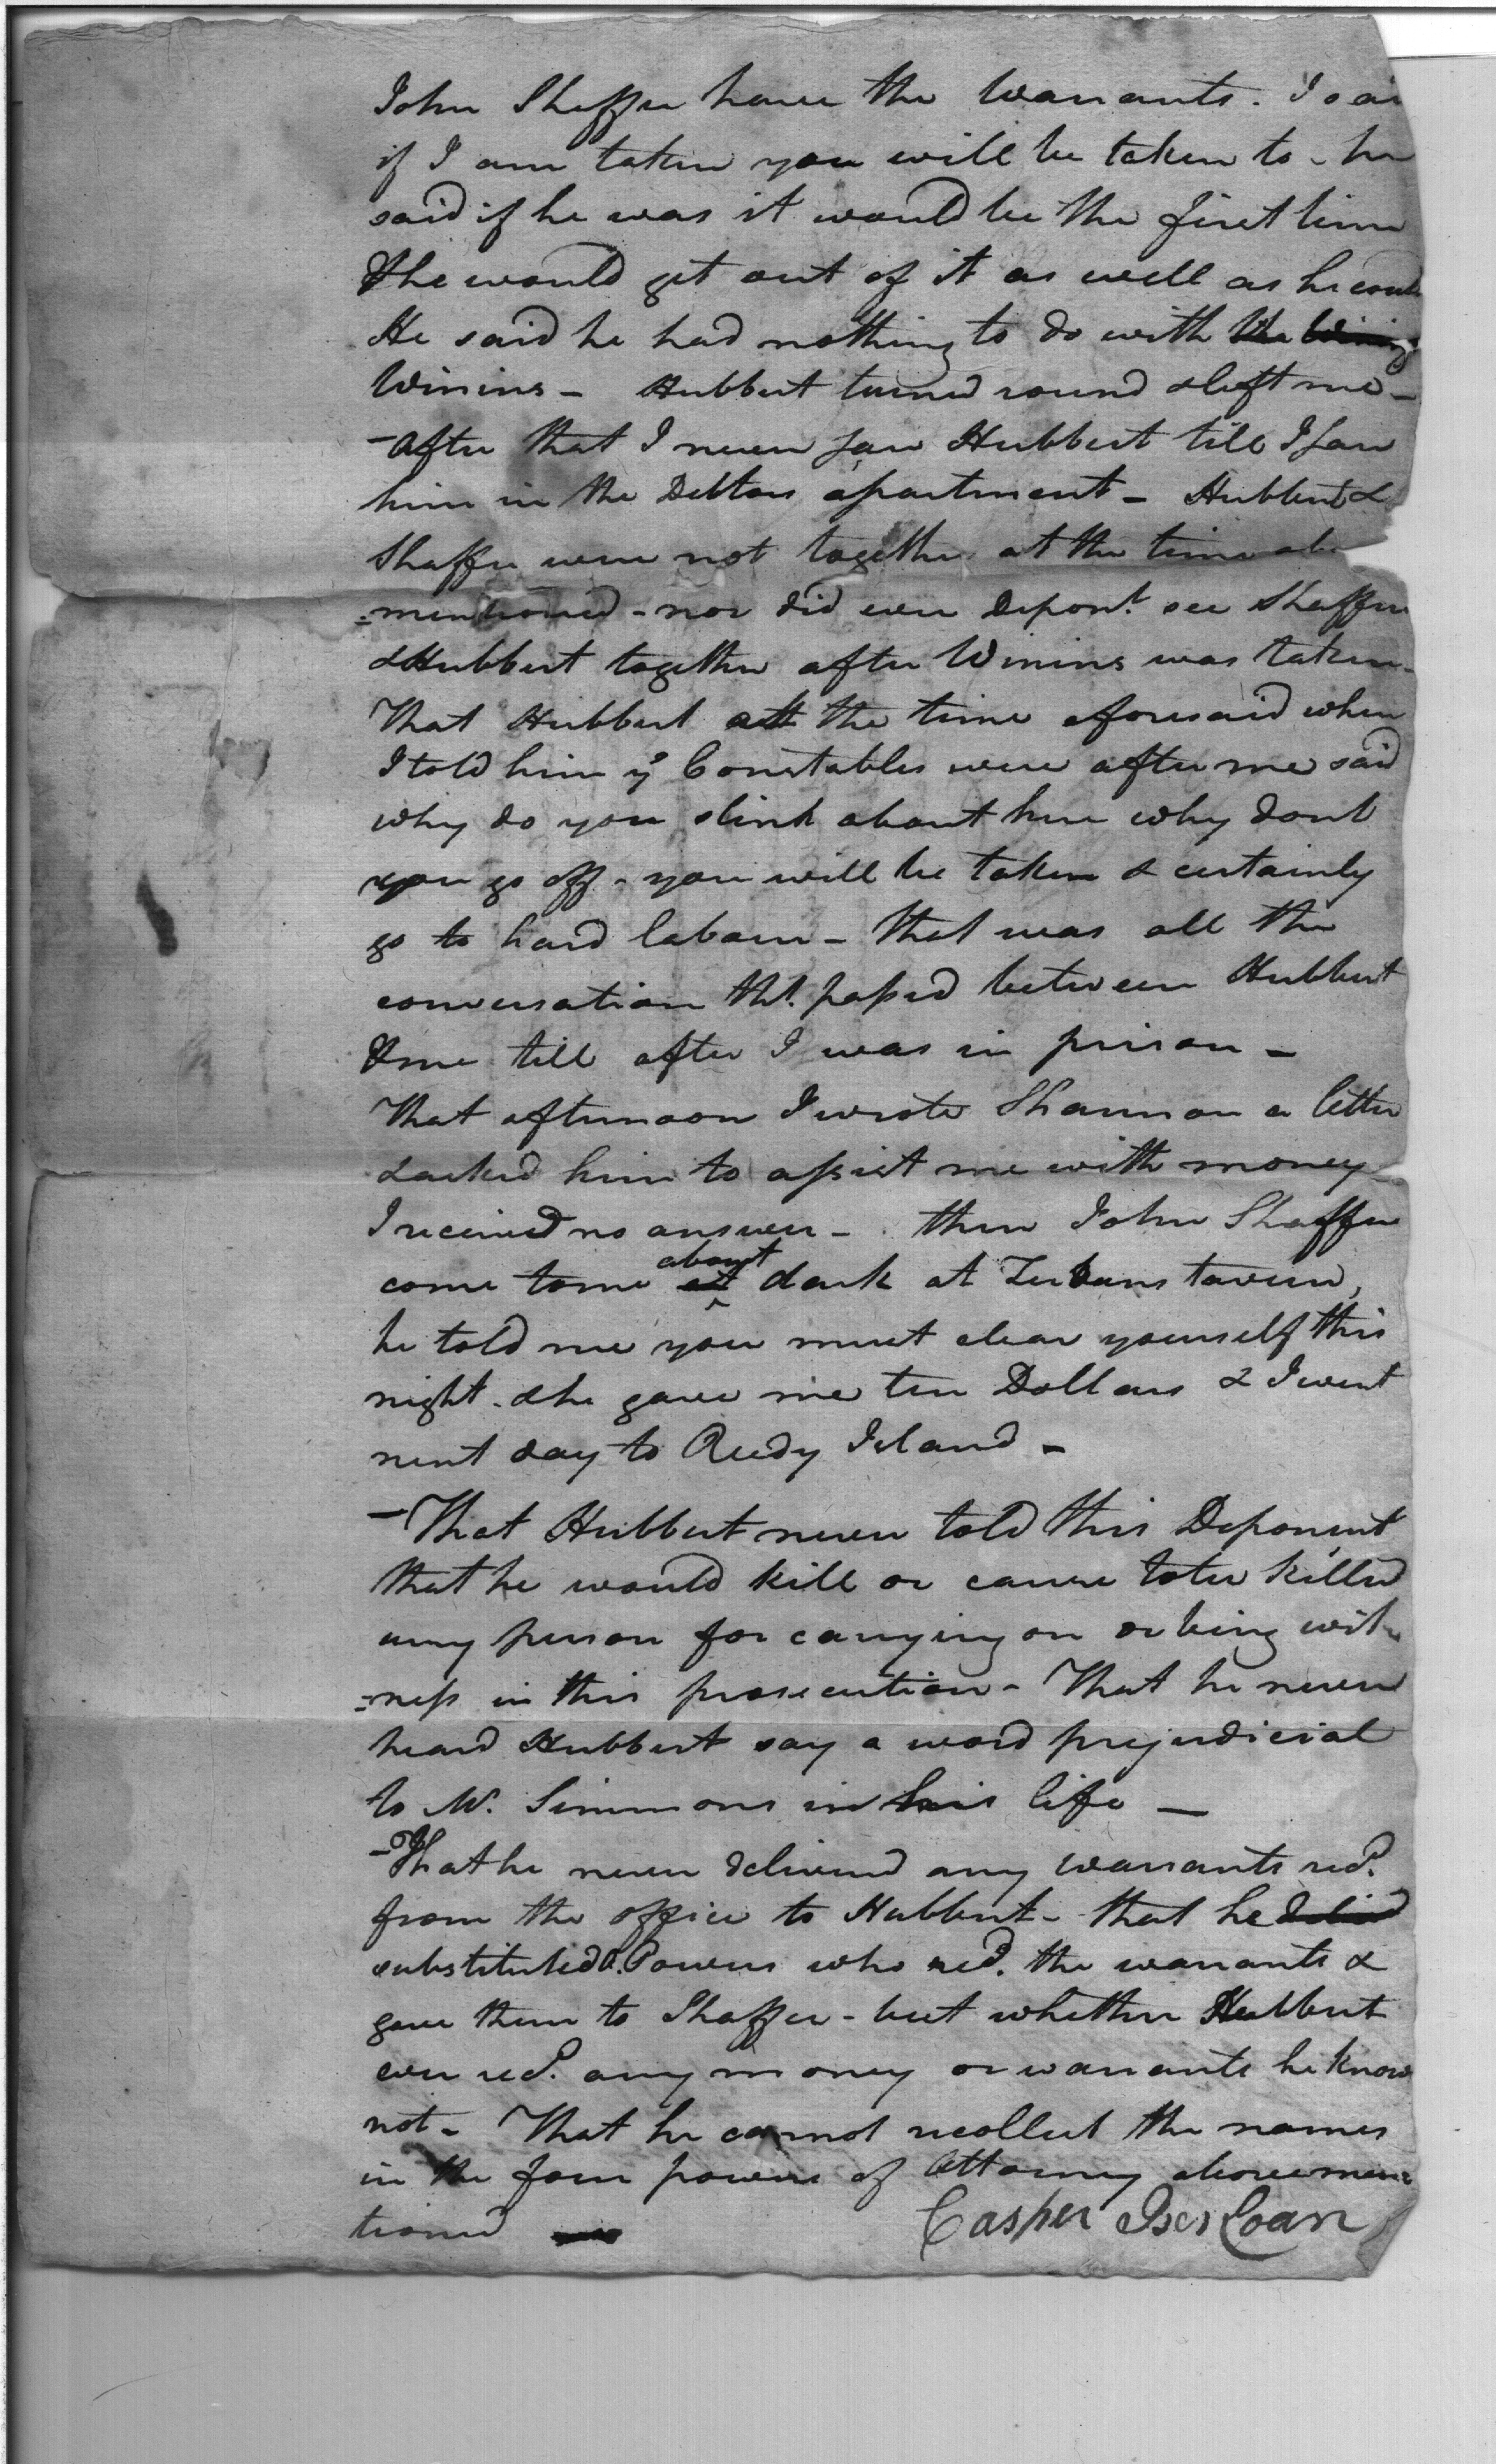 John Shaffer have the Warrants. I sai
if I am taken you will be taken to - he
said if he was it would be the first time
& he would get out of it as well as he could
He said he had nothing to do with the Wining
Winins - Hubbert turned round & left me -
- After that I never saw Hubbert till I saw
him in the Debtors apartment - Hubbert &
Shaffer were not together at the time abo
=mentioned - nor did ever Depont. see Shaffer
& Hubbert together after Winins was taken -
That Hubbert att the time aforesaid when
I told him ye Constables were after me said
why do you slink about here why dont
you go off - you will be taken & certainly
go to hard labour - that was all the
conversation tht. passed between Hubbert
& me till after I was in prison -
That afternoon I wrote Shannon a letter
& asked him to assist me with money
I received no answer - then John Shaffer
come to me at about dark at tavern,
he told me you must clear yourself this
night - & he gave me ten Dollars & I went
next day to Reedy Island -
- That Hubbert never told this Deponent
that he would kill or cause to be killed
any person for carrying on or being wit=
=ness in this prosecution - That he never
heard Hubbert say a word prejudicial
to Mr. Simmons in his life -
- That he never delivered any warrants recd.
from the office to Hubbert - that he
substituted Powers who recd. the warrants &
gave them to Shaffer - but whether Hubbert
ever recd. any money or warrants he know
not - That he cannot recollect the names
in the four powers of Attorney abovemen=
tioned
Casper Iserloan